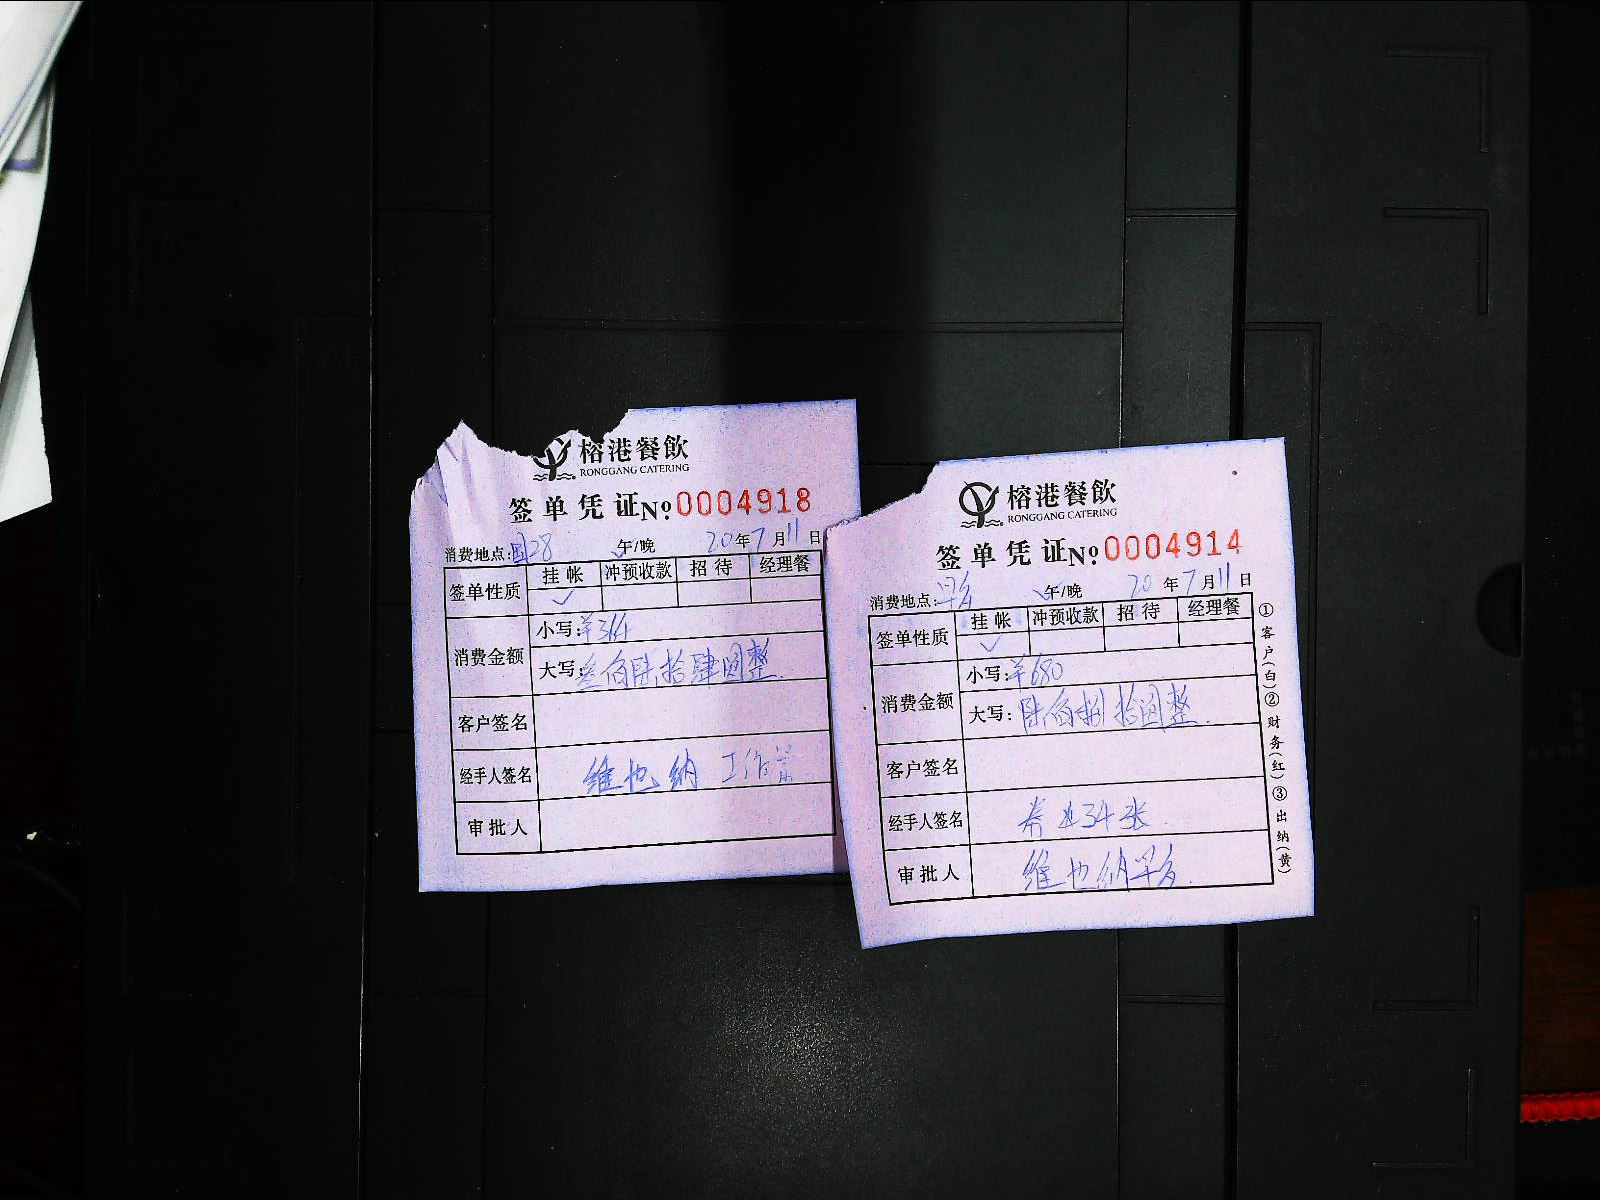 榕港餐飲
RONGGANG CATERING
签单凭证 No. 0004918
消费地点: 28 午/晚 20年7月11日
签单性质 挂帐 冲预收款 招待 经理餐
✓
消费金额 小写: ¥364
大写: 叁佰陆拾肆圆整
客户签名
经手人签名 维也纳 工作
审批人
榕港餐飲
RONGGANG CATERING
签单凭证 No. 0004914
消费地点: 早 午/晚 20年7月11日
签单性质 挂帐 冲预收款 招待 经理餐
✓
消费金额 小写: ¥680
大写: 陆佰捌拾圆整
客户签名
经手人签名 34张
审批人 维也纳早
①客户(白)②财务(红)③出纳(黄)